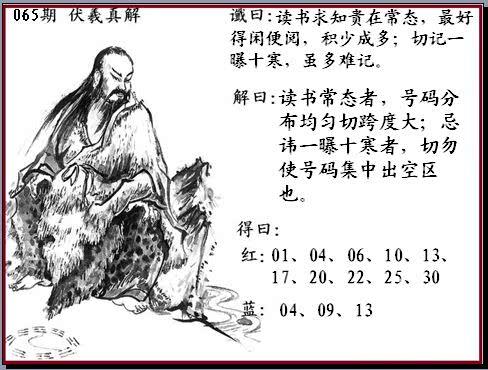 065期 伏羲真解
谶曰：读书求知贵在常态，最好
得闲便阅，积少成多；切记一
曝十寒，虽多难记。
解曰：读书常态者，号码分
布均匀切跨度大；忌
讳一曝十寒者，切勿
使号码集中出空区
也。
得曰：
红：01、04、06、10、13、
17、20、22、25、30
蓝： 04、09、13